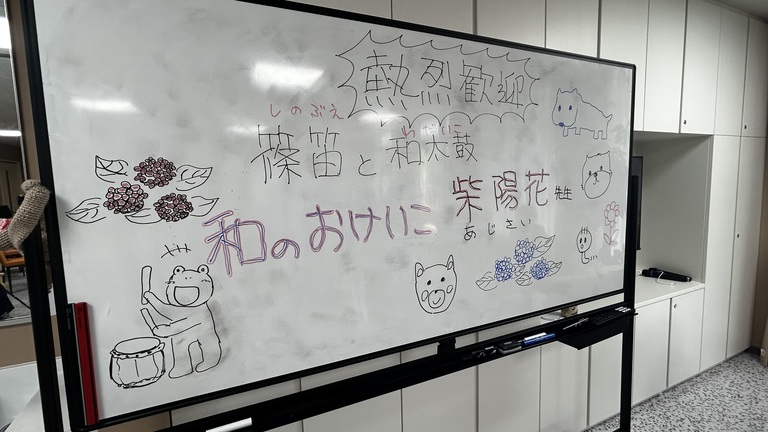 熱烈歓迎
しのぶえ
わだいこ
篠笛と和太鼓
紫陽花先生
あじさい
和のおけいこ